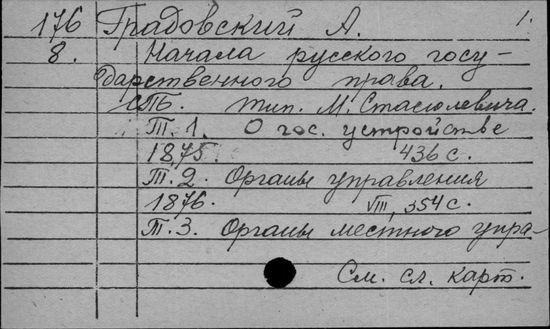 176 Градовский А. 1.
8. Начала русского госу-
дарственного права.
СПб. тип. М. Стасюлевича.
Т. 1. О гос. устройстве
1875. 436 с.
Т. 2. Органы управления
1876. VIII, 354 с.
Т. 3. Органы местного упра-
См. сл. карт.